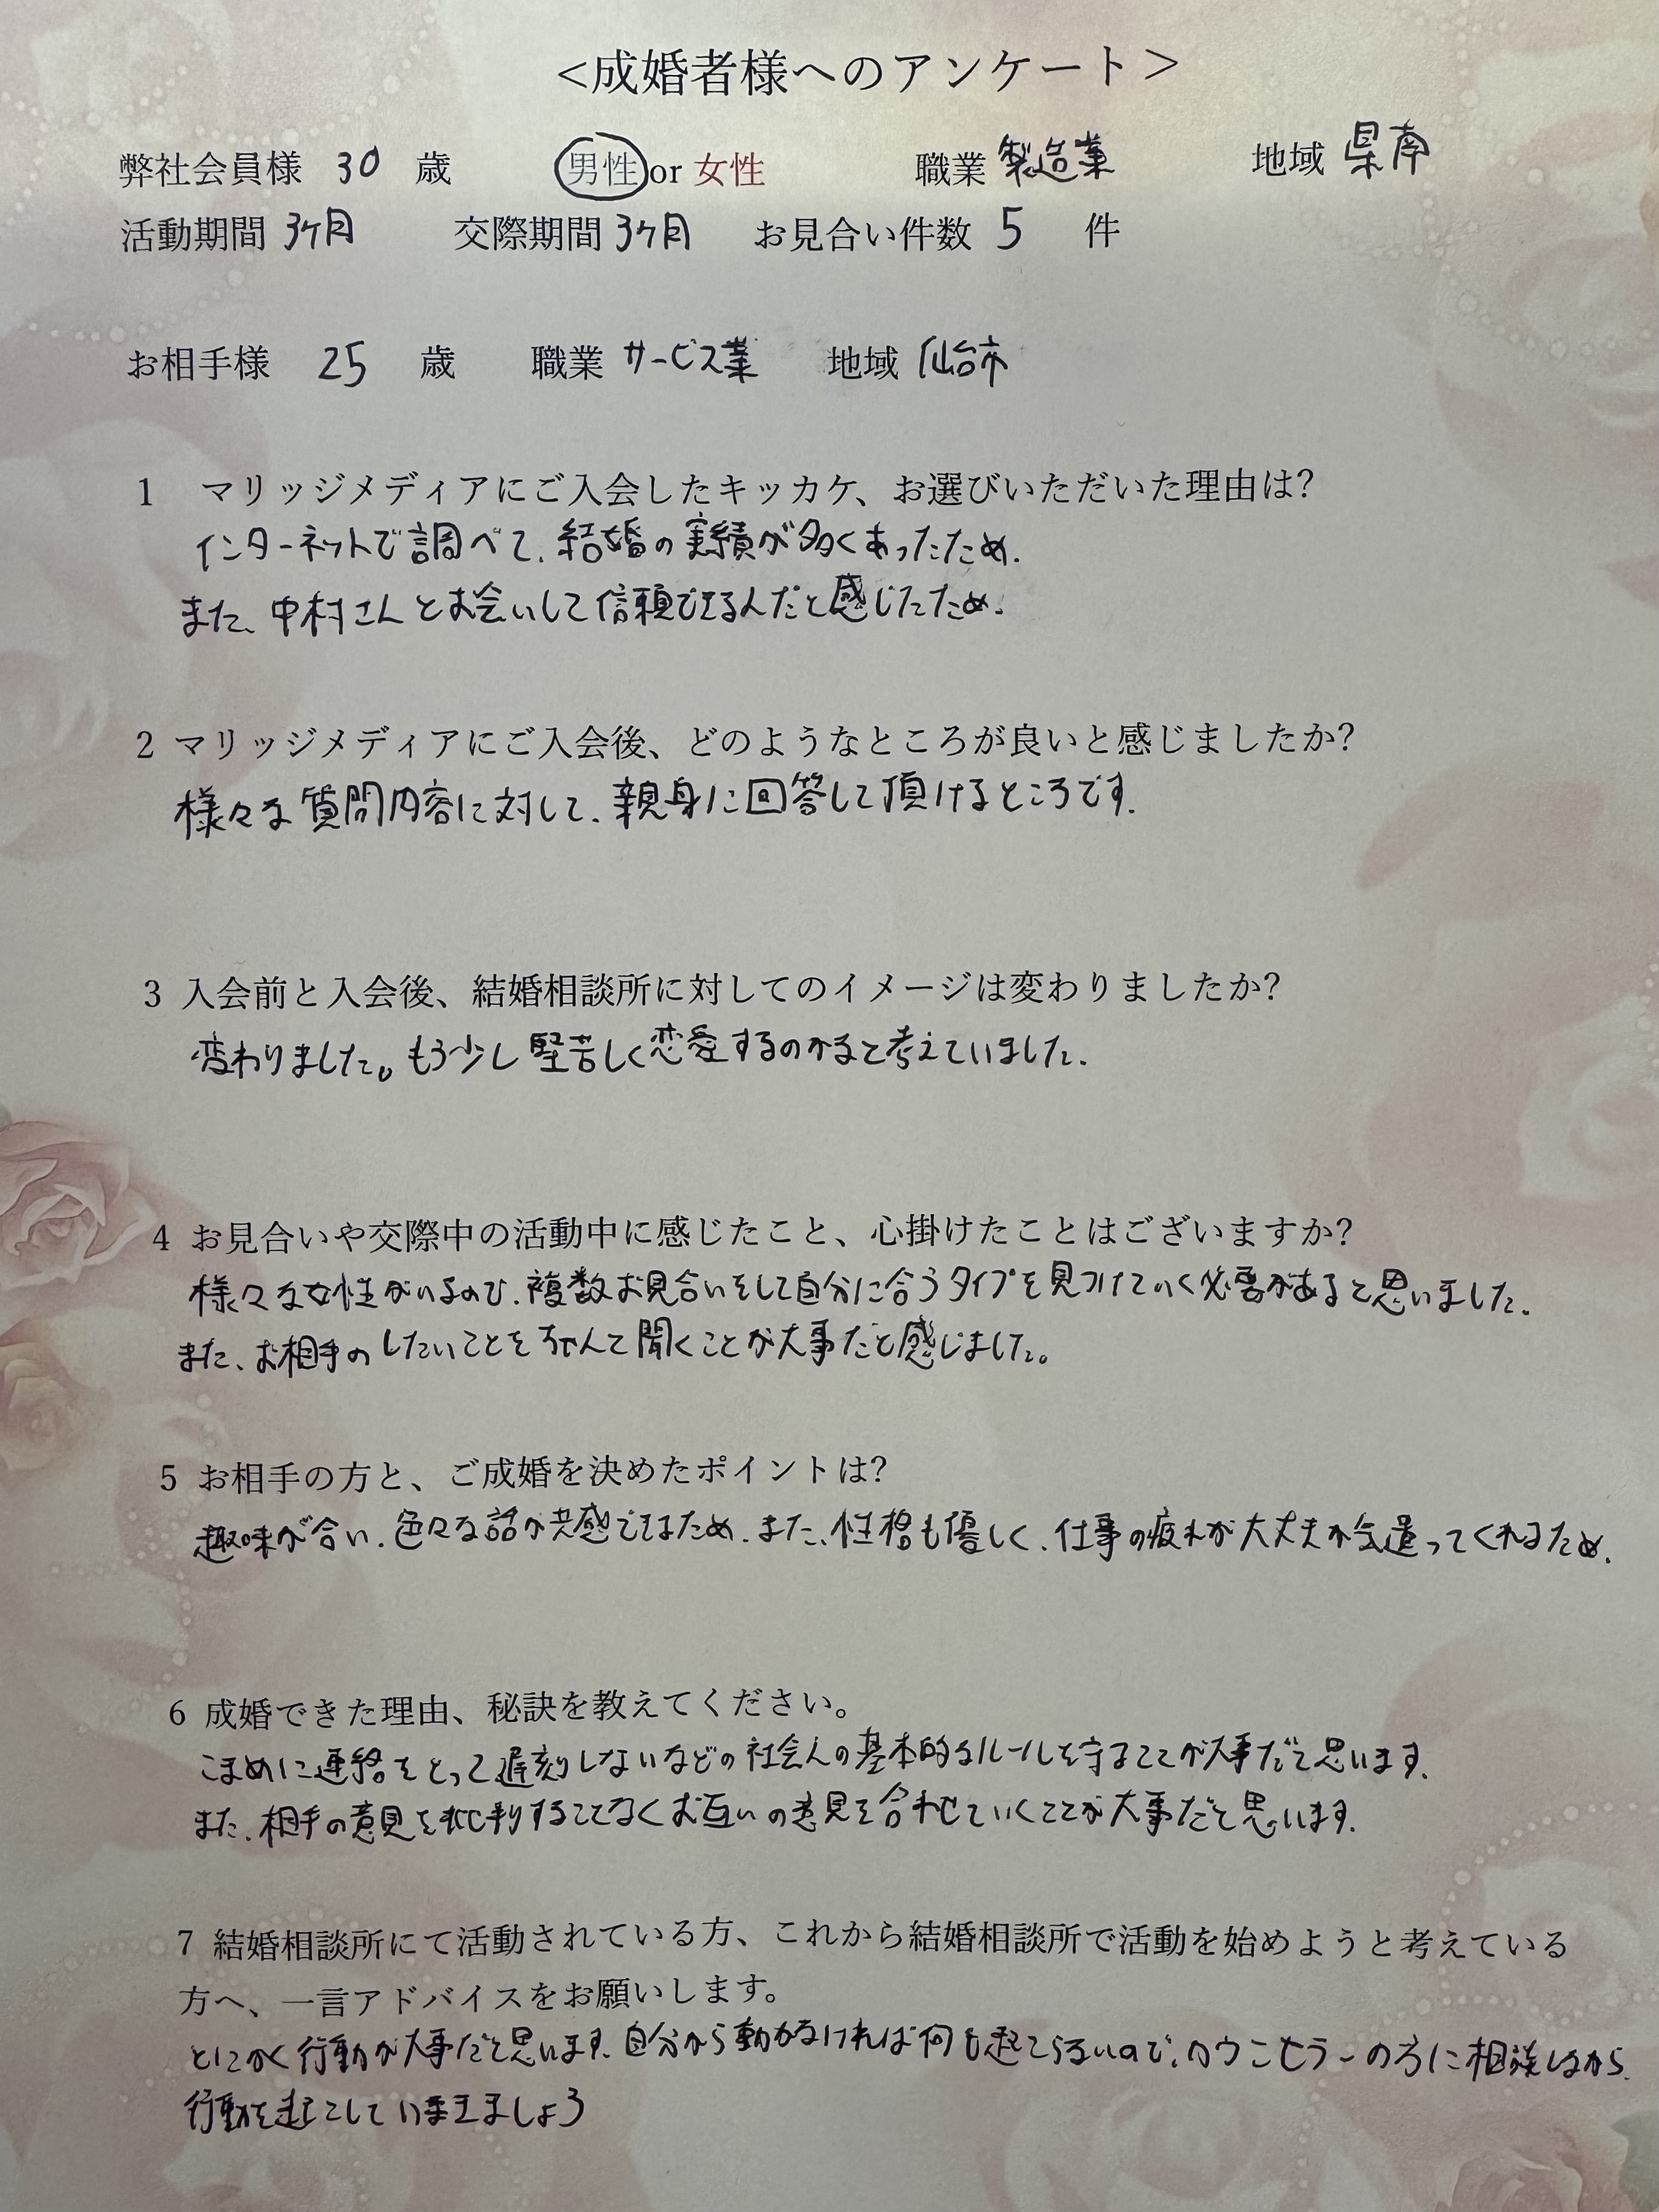 <成婚者様へのアンケート>
弊社会員様 30 歳 男性 or 女性 職業 製造業 地域 県南
活動期間 3ケ月 交際期間 3ケ月 お見合い件数 5 件
お相手様 25 歳 職業 サービス業 地域 仙台市
1 マリッジメディアにご入会したキッカケ、お選びいただいた理由は?
インターネットで調べて、結婚の実績が多くあったため。
また、中村さんとお会いして信頼できるんだと感じたため。
2 マリッジメディアにご入会後、どのようなところが良いと感じましたか?
様々な質問内容に対して、親身に回答して頂けるところです。
3 入会前と入会後、結婚相談所に対してのイメージは変わりましたか?
変わりました。もう少し堅苦しく恋愛するのかなと考えていました。
4 お見合いや交際中の活動中に感じたこと、心掛けたことはございますか?
様々な女性がいるので、複数お見合いをして自分に合うタイプを見つけていく必要があると思いました。
また、お相手のしたいことをちゃんと聞くことが大事だと感じました。
5 お相手の方と、ご成婚を決めたポイントは?
趣味が合い、色々な話が共感できるため、また、性格も優しく、仕事の疲れが大丈夫か気遣ってくれるため。
6 成婚できた理由、秘訣を教えてください。
こまめに連絡をとって遅刻しないなどの社会人の基本的なルールを守ることが大事だと思います。
また、相手の意見を批判することなくお互いの意見を合わせていくことが大事だと思います。
7 結婚相談所にて活動されている方、これから結婚相談所で活動を始めようと考えている
方へ、一言アドバイスをお願いします。
とにかく行動が大事だと思います。自分から動かなければ何も起こらないので、カウンセラーの方に相談しながら、
行動を起こしていきましょう